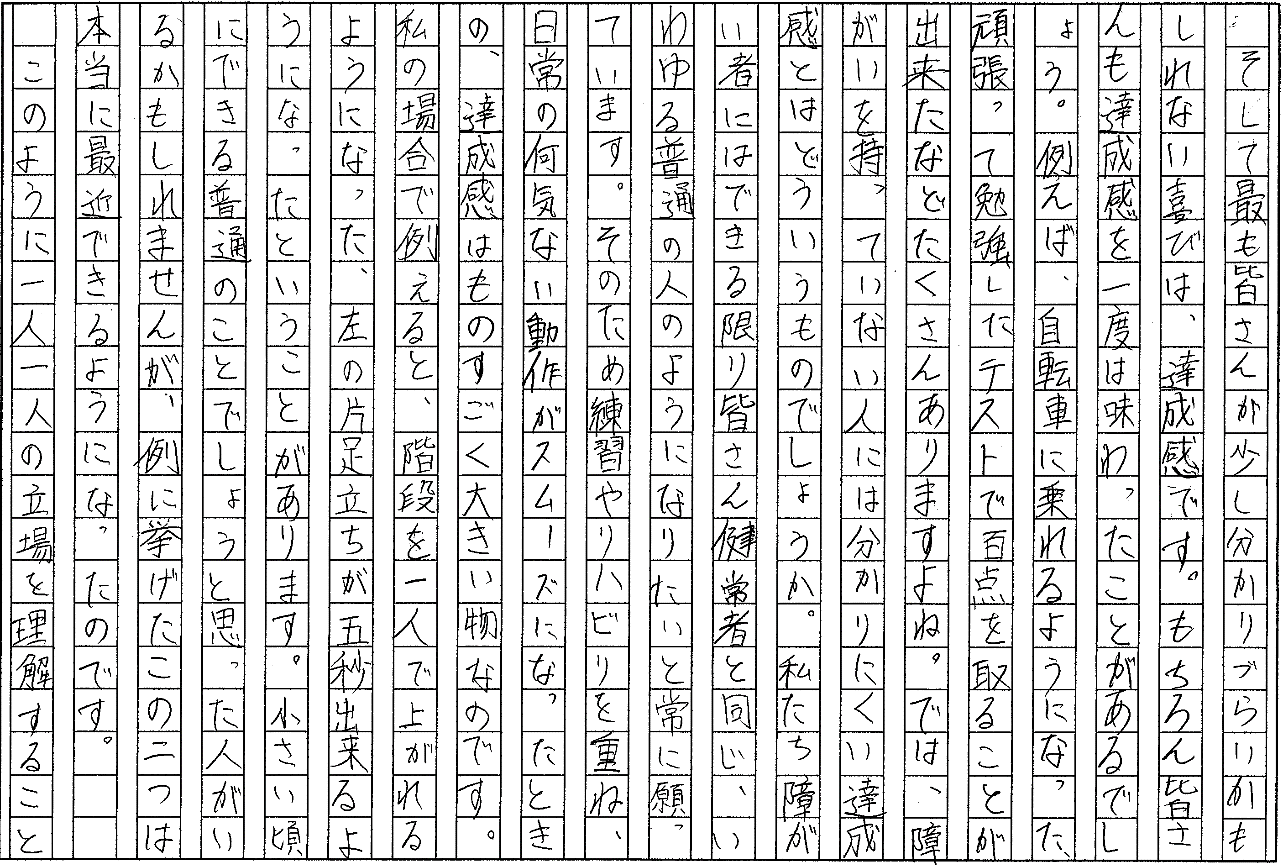 そして最も皆さんが少し分かりづらいかも
しれない喜びは、達成感です。もちろん皆さ
んも達成感を一度は味わったことがあるでし
ょう。例えば、自転車に乗れるようになった、
頑張って勉強したテストで百点を取ることが
出来たなどたくさんありますよね。では、障
がいを持っていない人には分かりにくい達成
感とはどういうものでしょうか。私たち障が
い者にはできる限り皆さん健常者と同じ、い
わゆる普通の人のようになりたいと常に願っ
ています。そのため練習やリハビリを重ね、
日常の何気ない動作がスムーズになったとき
の、達成感はものすごく大きい物なのです。
私の場合で例えると、階段を一人で上がれる
ようになった、左の片足立ちが五秒出来るよ
うになったということがあります。小さい頃
にできる普通のことでしょうと思った人がい
るかもしれませんが、例に挙げたこの二つは
本当に最近できるようになったのです。
このように一人一人の立場を理解すること